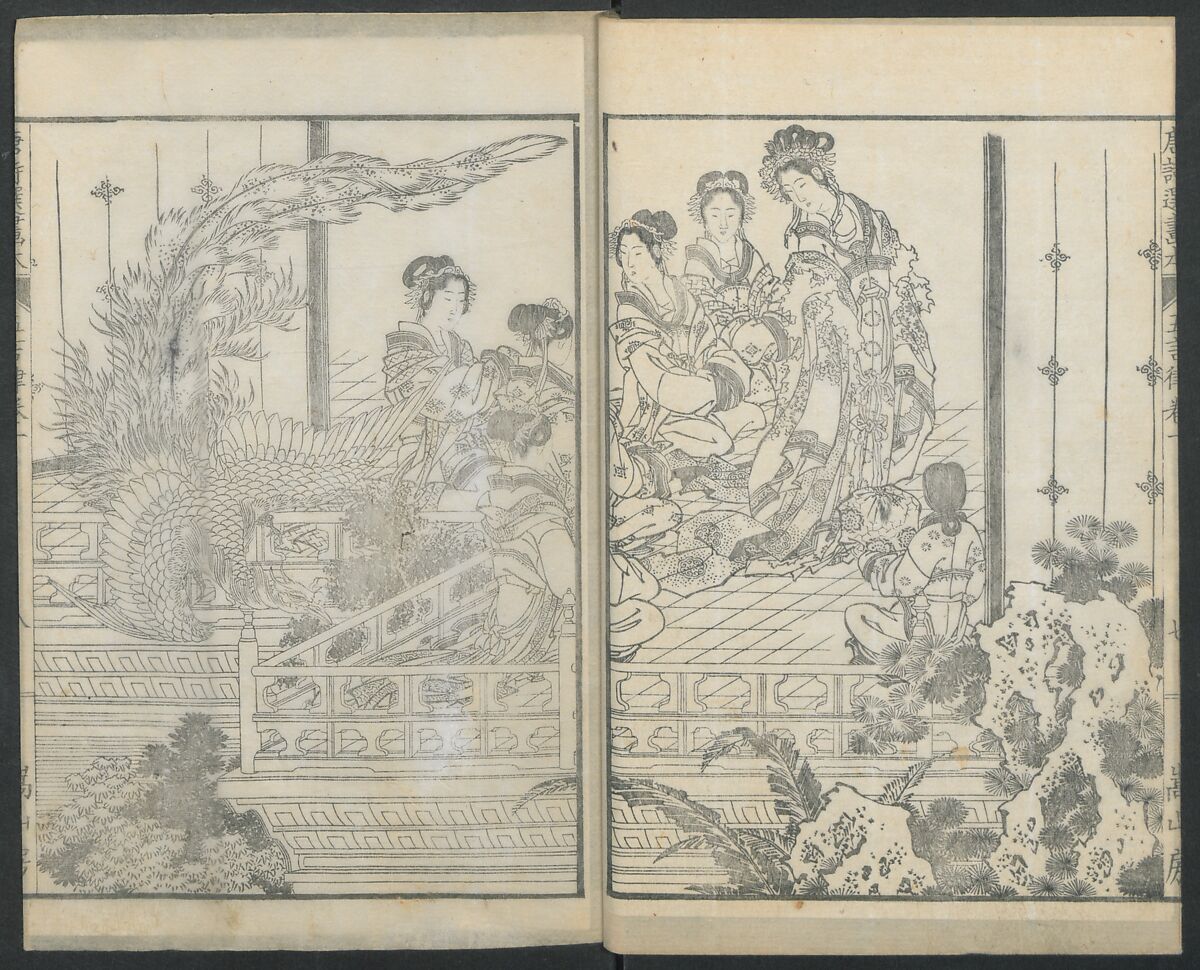 唐詩選畫本
五言律 卷一
七
嵩山房
唐詩選畫本
五言律 卷一
八
嵩山房